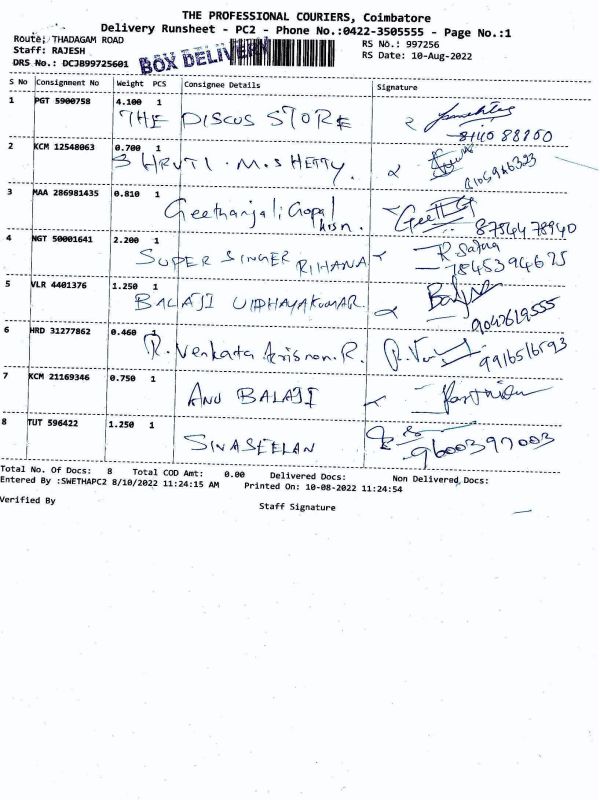 THE PROFESSIONAL COURIERS, Coimbatore
Delivery Runsheet - PC2 - Phone No.:0422-3505555 - Page No.:1
Route: THADAGAM ROAD
RS No.: 997256
Staff: RAJESH
RS Date: 10-Aug-2022
DRS No.: DCJB99725601
BOX DELIVERY
S No Consignment No Weight PCS Consignee Details Signature
1 PGT 5900758 4.100 1
THE DISCUS STORE
8140 88200
2 KCM 12548063 0.700 1
SHRUTI. M.SHETTY.
8105946323
3 MAA 286981435 0.810 1
Geethanjali Gopal
krisn.
Geetha
87544 78940
4 NGT 50001641 2.200 1
SUPER SINGER RIHANA
7845394625
5 VLR 4401376 1.250 1
BALAJI VIDHAYAKUMAR
9042619555
6 HRD 31277862 0.460 1
R. Venkata krisnan. R.
9916516593
7 KCM 21169346 0.750 1
ANU BALAJI
8 TUT 596422 1.250 1
SIVASEELAN
9600397003
Total No. Of Docs: 8 Total COD Amt: 0.00 Delivered Docs: Non Delivered Docs:
Entered By :SWETHAPC2 8/10/2022 11:24:15 AM Printed On: 10-08-2022 11:24:54
Verified By
Staff Signature